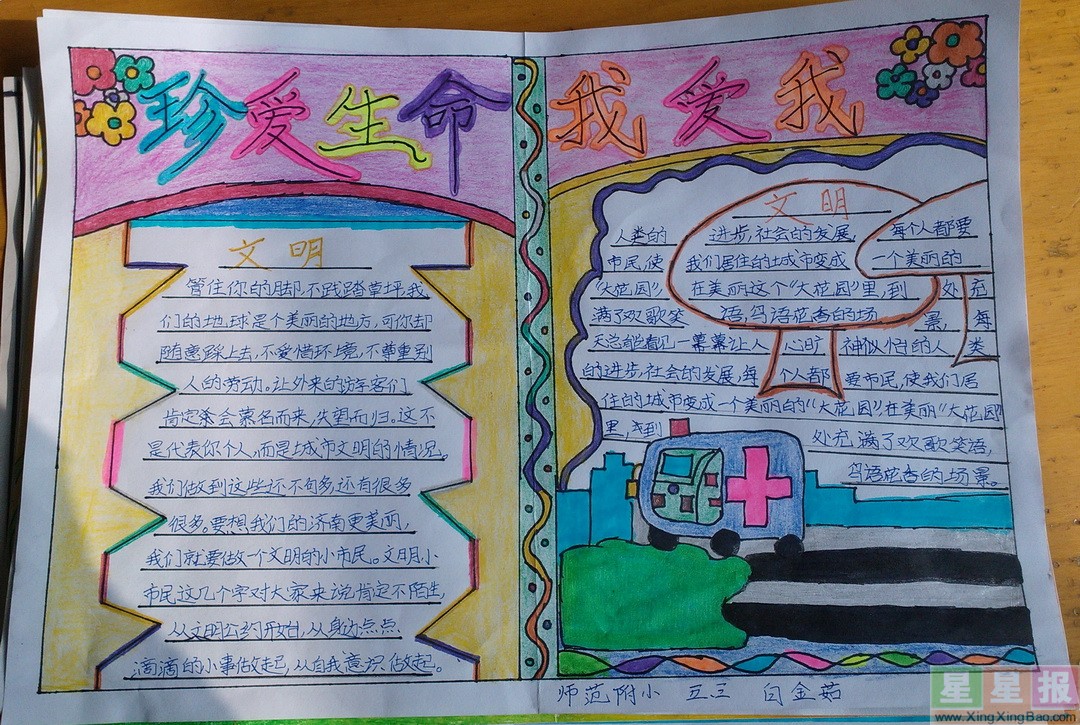 珍爱生命
文明
管住你的脚,不践踏草坪,我
们的地球是个美丽的地方,可你却
随意踩上去,不爱惜环境,不尊重别
人的劳动。让外来的游客们
肯定会慕名而来,失望而归。这不
是代表你个人,而是城市文明的情况。
我们做到这些还不句多,还有很多
很多。要想我们的济南更美丽,
我们就要做一个文明的小市民。文明小
市民这几个字对大家来说肯定不陌生,
从文明公约开始,从身边点点
滴滴的小事做起,从自我意识做起。
我爱我
文明
人类的进步,社会的发展,每个人都要
市民,使我们居住的城市变成一个美丽的
"大花园",在美丽这个"大花园"里,到处充
满了欢歌笑语,鸟语花香的场景,每
天总能看见一幕幕让人心旷神似怡的人类
的进步,社会的发展,每个人都要市民,使我们居
住的城市变成一个美丽的"大花园",在美丽"大花园"
里,到处充满了欢歌笑语,
鸟语花香的场景。
师范附小 五三 白金茹
星星报
www.XingXingBao.com